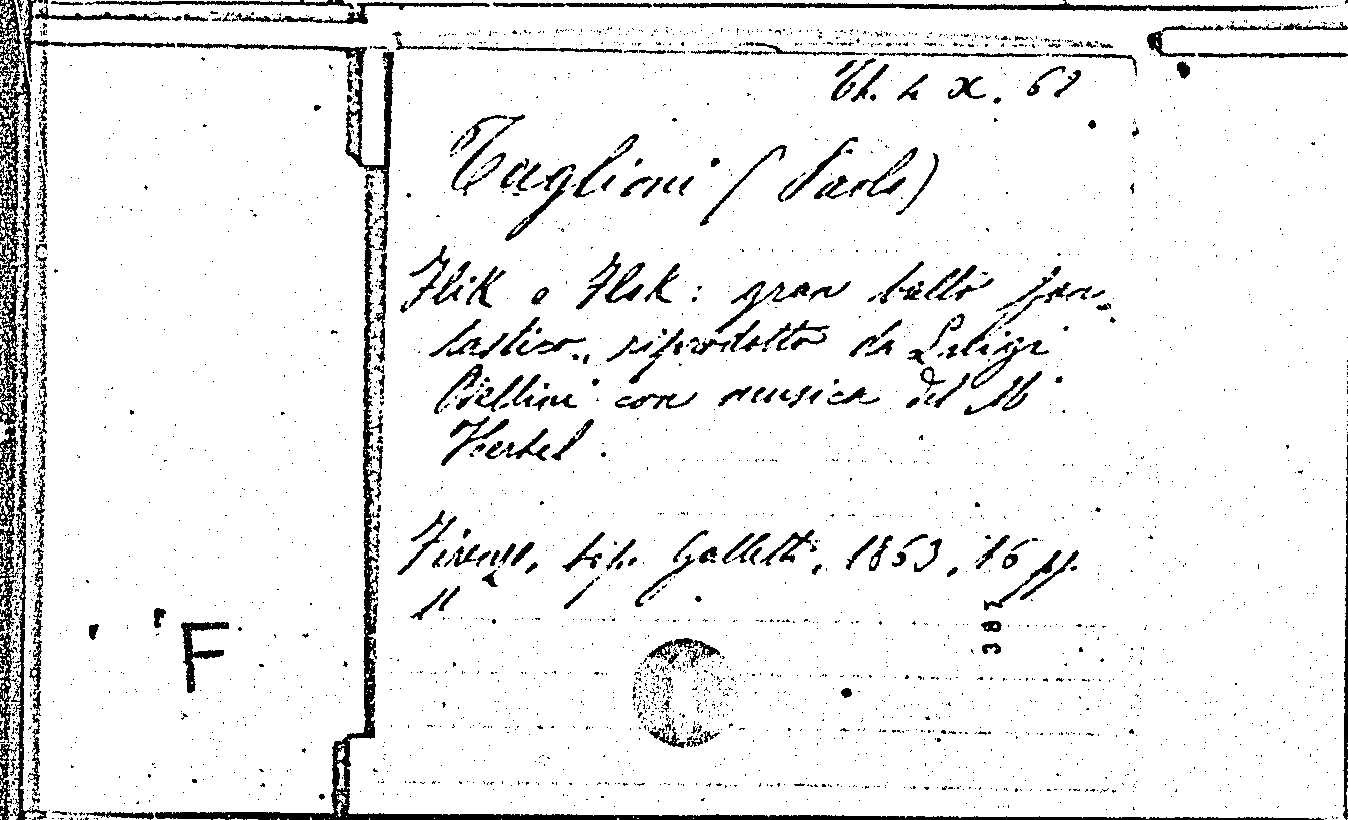 Th. 4 X. 61
Taglioni (Paolo)
Flik e Flok: gran ballo fan-
tastico, riprodotto da Luigi
con musica del M°
Hertel.
Firenze, tip. Galletti, 1863, 16 pp.
387
F